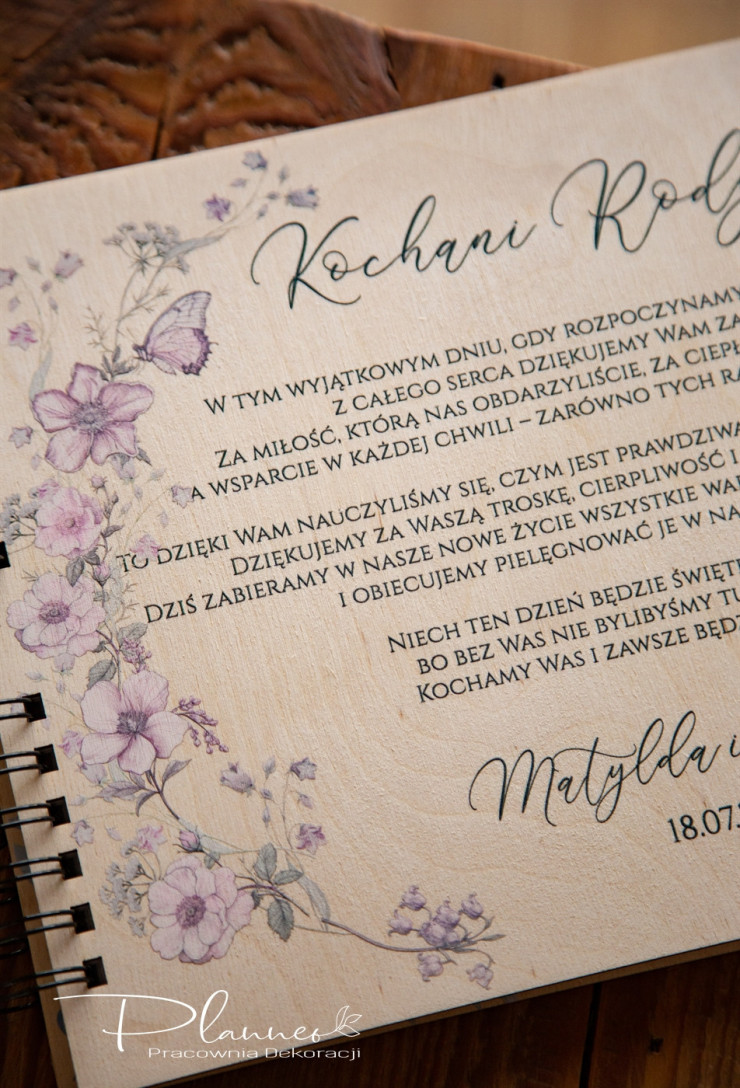 Kochani
W TYM WYJĄTKOWYM DNIU, GDY ROZPOCZYNAMY
Z CAŁEGO SERCA DZIĘKUJEMY WAM ZA
ZA MIŁOŚĆ, KTÓRĄ NAS OBDARZYLIŚCIE, ZA
A WSPARCIE W KAŻDEJ CHWILI – ZARÓWNO TYCH
TO DZIĘKI WAM NAUCZYLIŚMY SIĘ, CZYM JEST
DZIĘKUJEMY ZA WASZĄ TROSKĘ, CIERPLIWOŚĆ I
DZIŚ ZABIERAMY W NASZE NOWE ŻYCIE WSZYSTKIE
I OBIECUJEMY PIELĘGNOWAĆ JE W
NIECH TEN DZIEŃ BĘDZIE
BO BEZ WAS NIE BYLIBYŚMY
KOCHAMY WAS I ZAWSZE
Matylda i
18.07.
Planneo
Pracownia Dekoracji